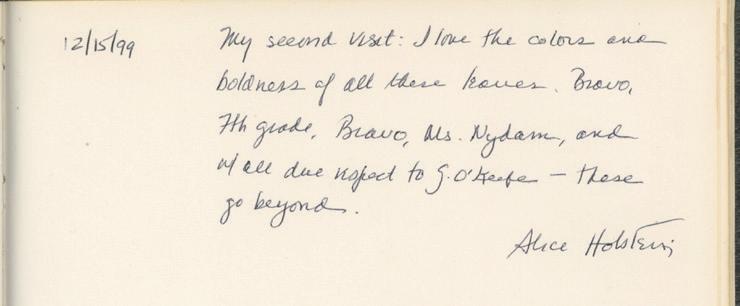 12/15/99 My second visit: I love the colors and
boldness of all these leaves. Bravo,
7th grade, Bravo, Ms. Nydam, and
w/ all due respect to G. O'Keefe – these
go beyond.
Alice Holstein